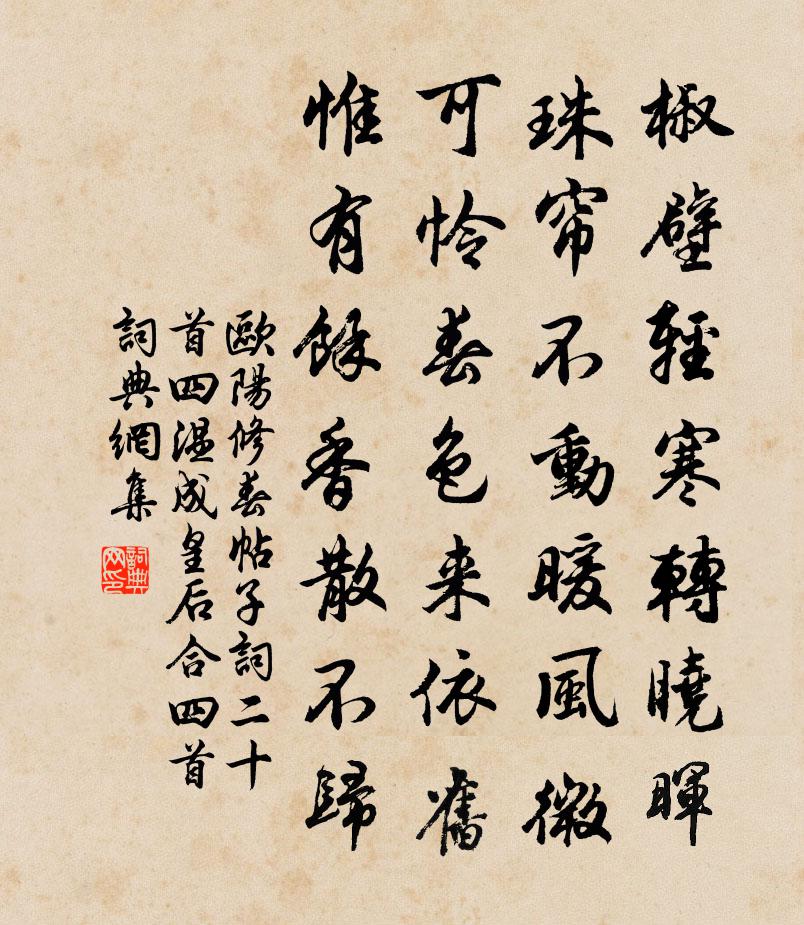 椒壁輕寒轉曉暉
珠帘不動暖風微
可怜春色来依舊
惟有餘香散不歸
歐陽修春帖子詞二十
首四温成皇后合四首
詞典網集
詞典网印